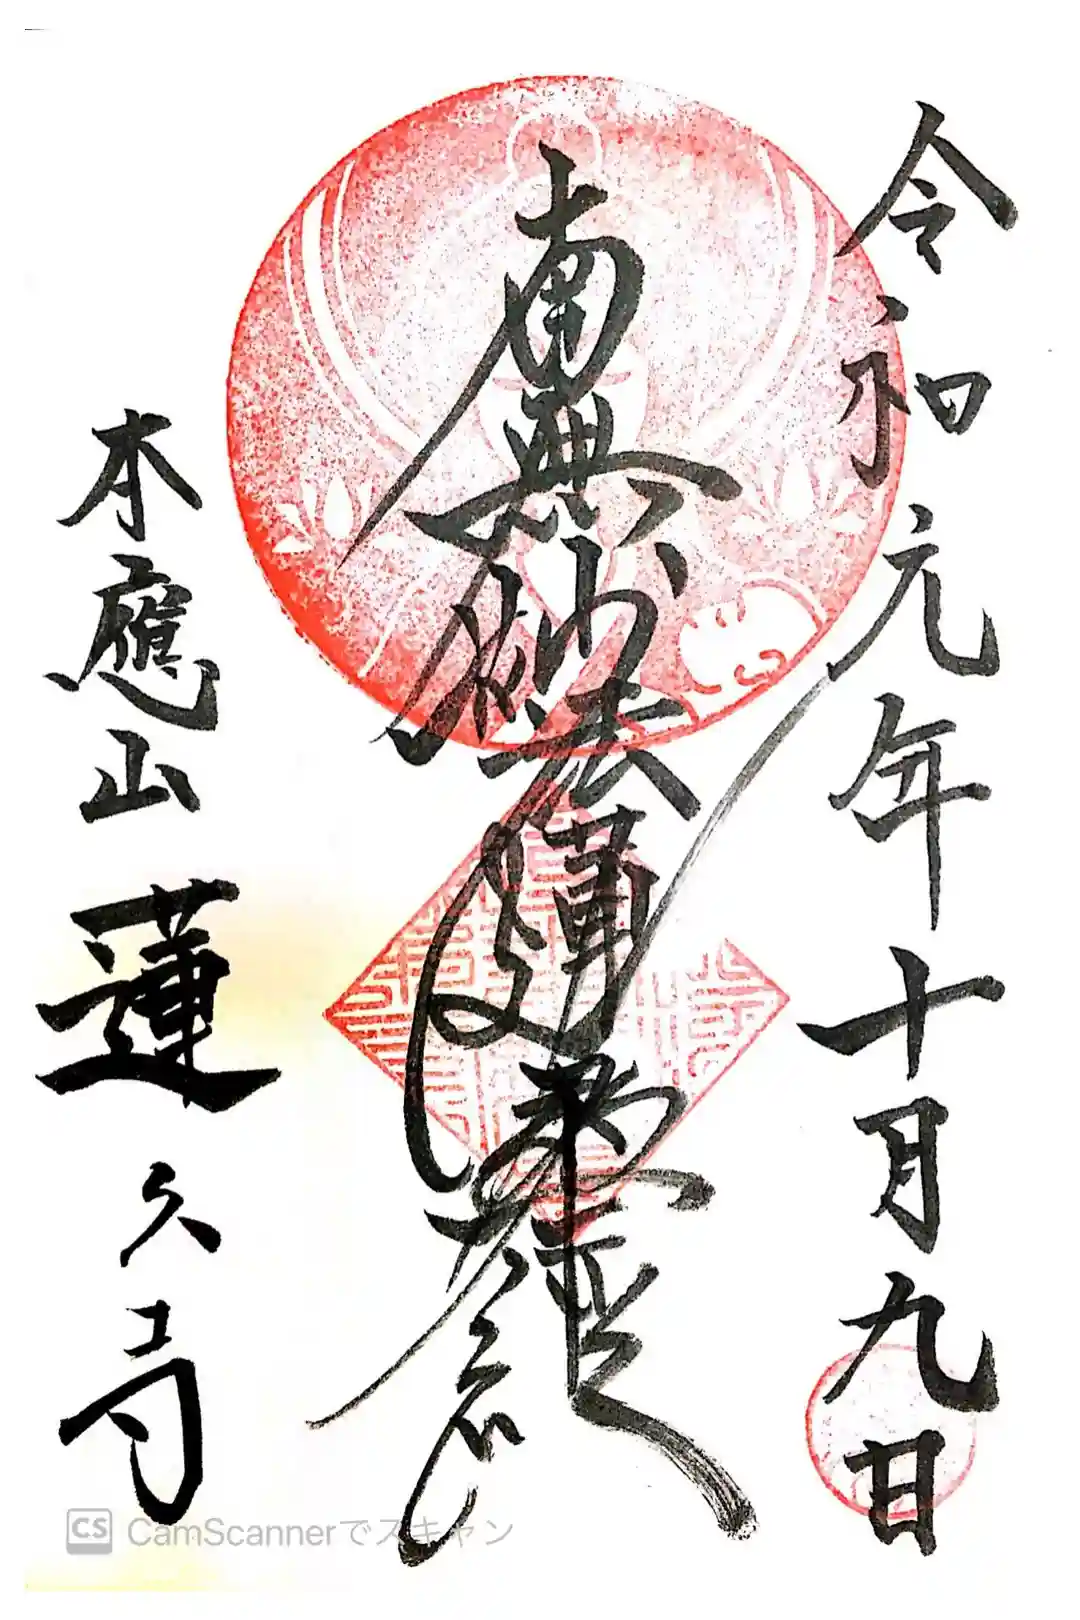 令和元年十月九日
南無妙法蓮華経
本應山 蓮久寺
CS CamScannerでスキャン